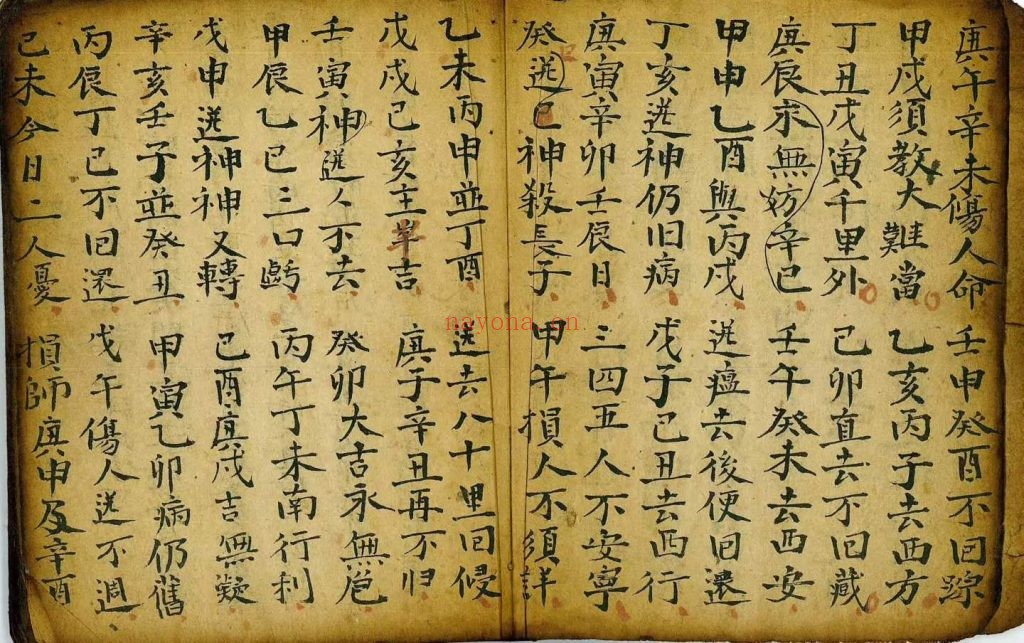 庚午辛未傷人命 壬申癸酉不回踪
甲戌須教大難當 乙亥丙子去西方
丁丑戊寅千里外 己卯直去不回藏
庚辰求無妨辛巳 壬午癸未去西安
甲申乙酉與丙戌 送瘟去後便回還
丁亥送神仍旧病 戊子己丑去西行
庚寅辛卯壬辰日 三四五人不安寧
癸巳送神殺長子 甲午損人不須詳
乙未丙申並丁酉 送去八十里回侵
戊戌己亥主羊吉 庚子辛丑再不归
壬寅神送人不去 癸卯大吉永無危
甲辰乙巳三口虧 丙午丁未南行利
戊申送神神又轉 己酉庚戌吉無疑
辛亥壬子並癸丑 甲寅乙卯病仍舊
丙辰丁巳不回還 戊午傷人送不週
己未今日二人憂 損師庚申及辛酉
nayona.cn